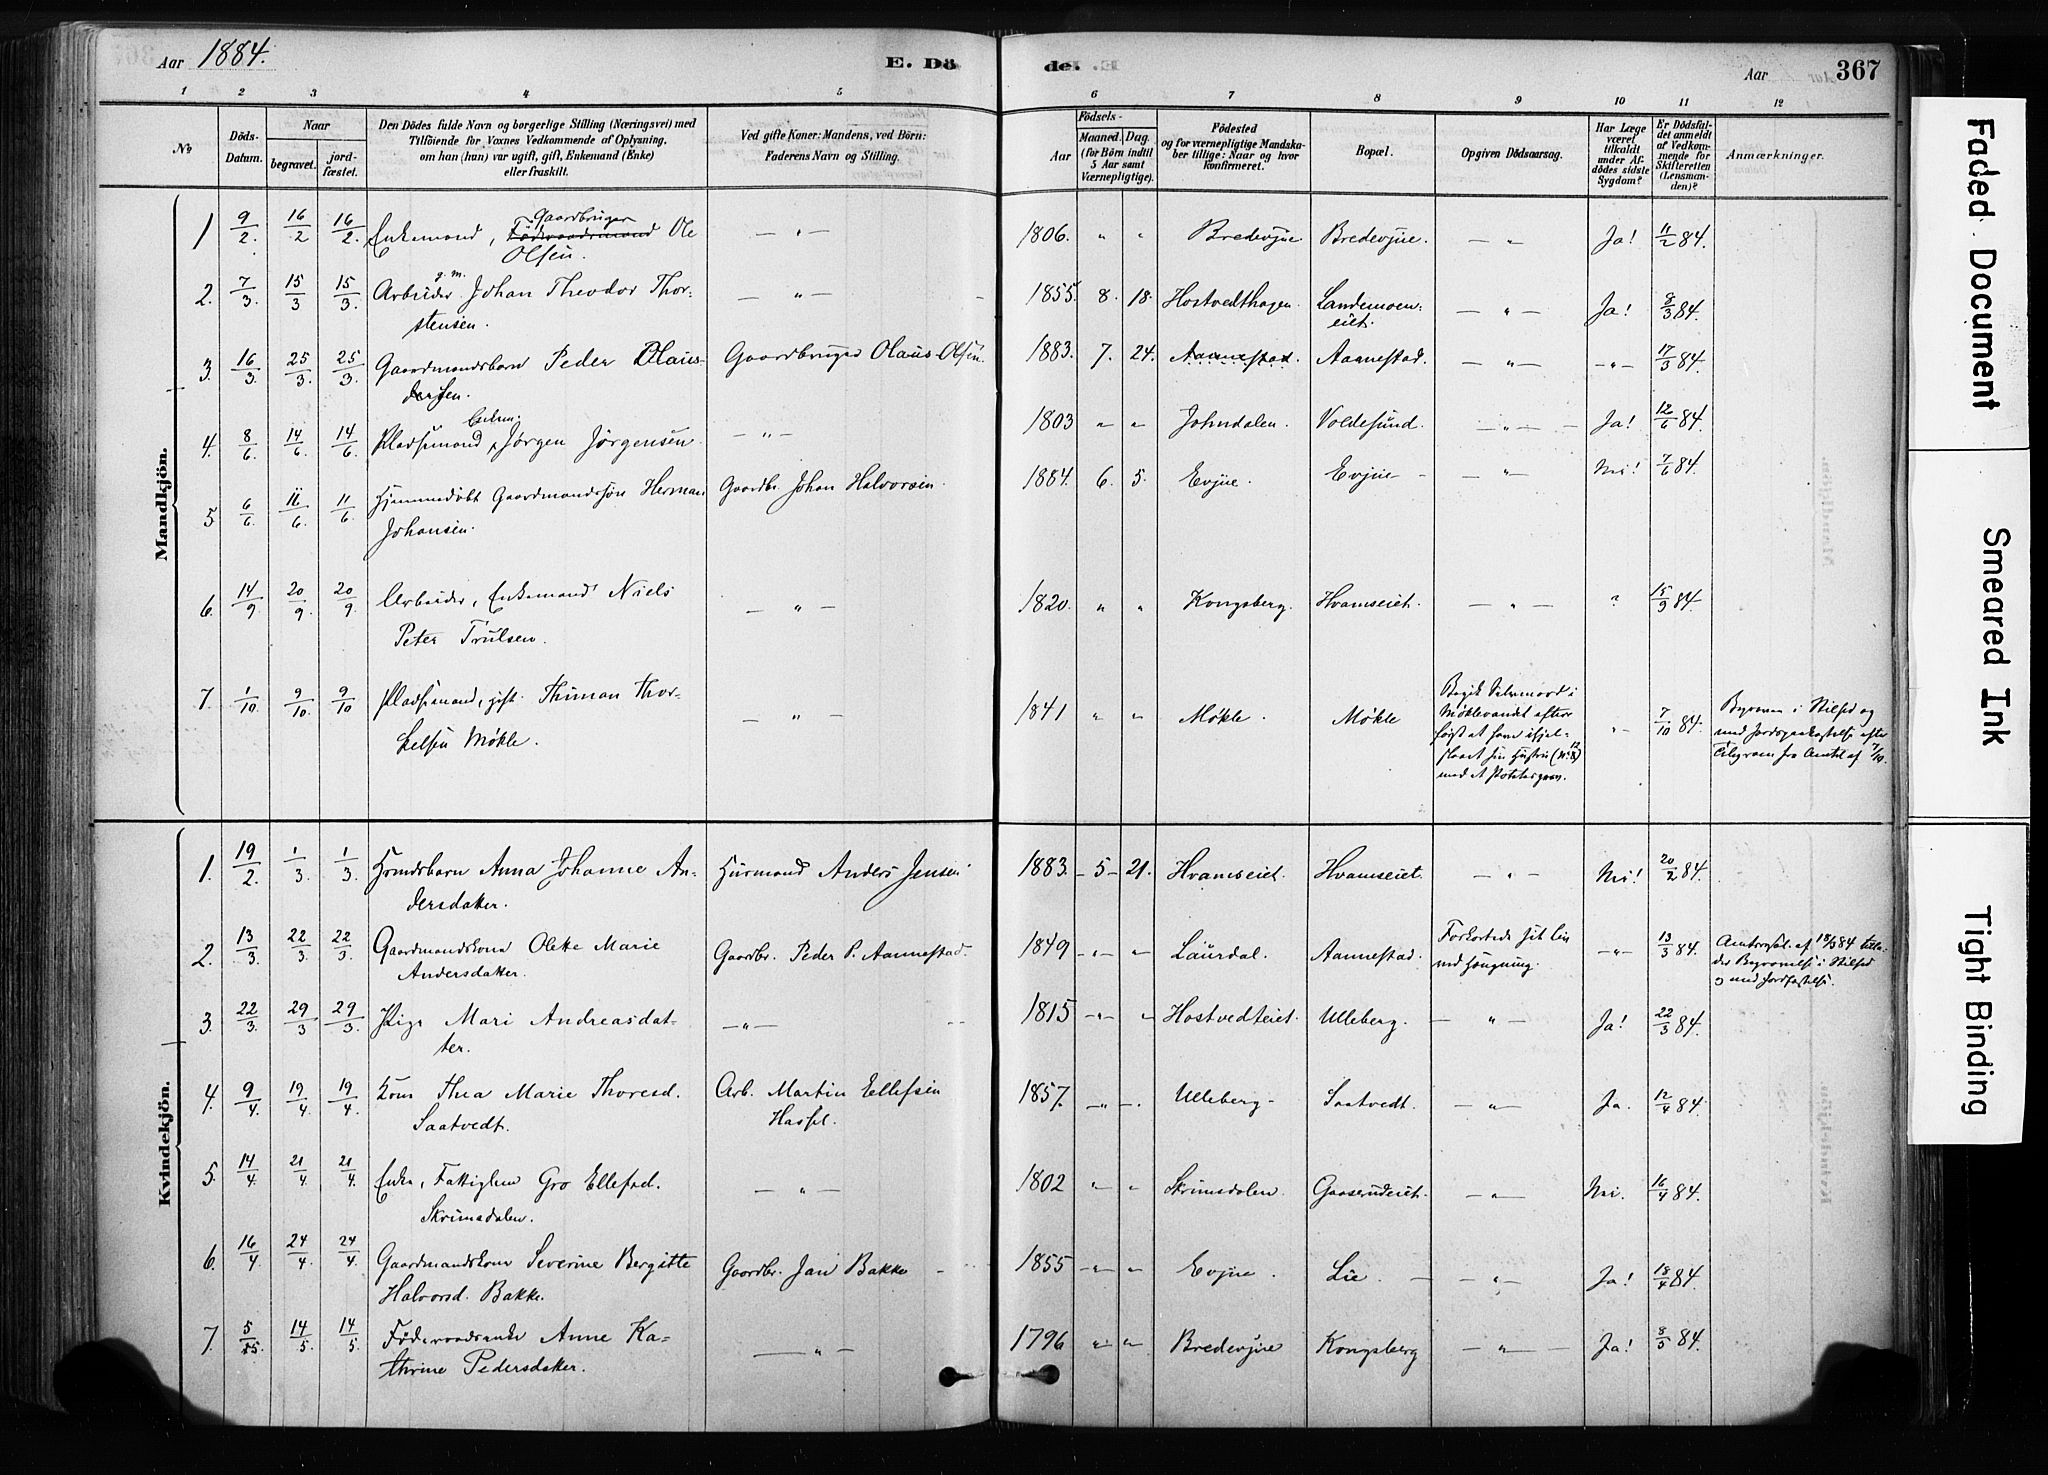 Aar 1884.
E. Dö
de.
Aar
367
1 2 3 4 5 6 7 8 9 10 11 12
No
Döds-Datum.
Naar
begravet.
jord-fæstet.
Den Dödes fulde Navn og borgerlige Stilling (Næringsvei) med
Tilföiende for Voxnes Vedkommende af Oplysning,
om han (hun) var ugift, gift, Enkemand (Enke)
eller fraskilt.
Ved gifte Koner: Mandens, ved Börn:
Faderens Navn og Stilling.
Födsels-
Aar
Maaned.
Dag.
(for Börn indtil
5 Aar samt
Værnepligtige).
Födested
og for værnepligtige Mandska-
ber tillige: Naar og hvor
konfirmeret.
Bopæl.
Opgiven Dödsaarsag.
Har Læge
været
tilkaldt
under Af-
dödes sidste
Sygdom?
Er Dödsfal-
det anmeldt
af Vedkom-
mende for
Skifteretten
(Lensman-
den)?
Anmærkninger.
Mandkjön.
1 9/2. 16/2 16/2. Enkemand, Gaardbruger Ole — " — 1806. " " Bredevjue Bredevjue. — " — Ja! 11/2 84.
Olsen.
2. 7/3. 15/3 15/3. Arbeider g. m. Johan Theodor Thor- — " — 1855. 8. 18. Hostvedthagen. Landemoen- — " — Ja! 8/3 84.
stensen. eiet.
3. 16/3. 25/3. 25/3. Gaardmandsbarn Peder Olaus- Gaardbruger Olaus Olsen. 1883. 7. 24. Aannestad. Aannestad. — " — — " — 17/3 84.
sen.
4. 8/6. 14/6. 14/6. Pladsmand, Jørgen Jørgensen. — " — 1803 " " Johndalen. Voldesund. — " — Ja! 12/6 84.
5 6/6. 11/6. 11/6. Hjemmedøbt Gaardmandssøn Herman Gaardbr. Johan Halvorsen. 1884. 6. 5. Evjue. Evjue — " — Nei! 7/6 84.
Johansen.
6. 14/9. 20/9. 20/9. Arbeider, Enkemand Niels — " — 1820. " " Kongsberg. Hvamseiet. — " — " 15/9 84.
Peter Trulsen.
7. 1/10 9/10 9/10 Pladsmand, gift. Thiman Thor- — " — 1841 " " Møkle. Møkle " 7/10 84.
kelsen Møkle.
Begik Selvmord i
Møklevandet efter
først at have ihjel-
slaaet sin Hustru
med et
i Stilhed og
med Jordspaakastelse efter
Telegram fra Amtet af 7/10.
Kvindekjön.
1. 19/2. 1/3. 1/3. Hrmdsbarn Anna Johanne An- Husmand Anders Jensen 1883. 5 21. Hvamseiet. Hvamseiet. — " — Nei! 20/2 84.
dersdatter.
2. 13/3. 22/3. 22/3. Gaardmandskone Oleke Marie Gaardbr. Peder P. Aannestad. 1849 — " — " Laurdal. Aannestad. Forkortede sit Liv — " — 13/3 84. Amtsresol. af 18/3 84 tilla-
Andersdatter. ved Hængning. der Begravelse i Stilhed
og med Jordfæstelse.
3. 22/3. 29/3 29/3. Pige Mari Andreasdat- — " — 1815 — " — " Hostvedteiet. Ulleberg. — " — Ja! 22/3 84.
ter.
4. 9/4. 19/4. 19/4. Kone Thea Marie Thoresd. Arb. Martin Ellefsen 1857. — " — Ulleberg Saatvedt. — " — Ja. 12/4 84.
Saatvedt. Hassel.
5. 14/4. 21/4. 21/4. Enke, Fattiglem Gro Ellefsd. — " — 1802 " " Skrimsdalen. Gaaserudeiet. — " — Nei. 16/4 84.
Skrimsdalen.
6. 16/4. 24/4. 24/4. Gaardmandskone Severine Bergitte Gaardbr. Jan Bakke 1855 — " — " Evjue. Lie. — " — Ja! 18/4 84.
Halvorsd. Bakke.
7. 5/5. 14/5. 14/5. Føderaadsenke Anne Ka- — " — 1796 " " Bredevjue Kongsberg — " — Ja! 8/5 84.
thrine Pedersdatter.
Faded Document
Smeared Ink
Tight Binding